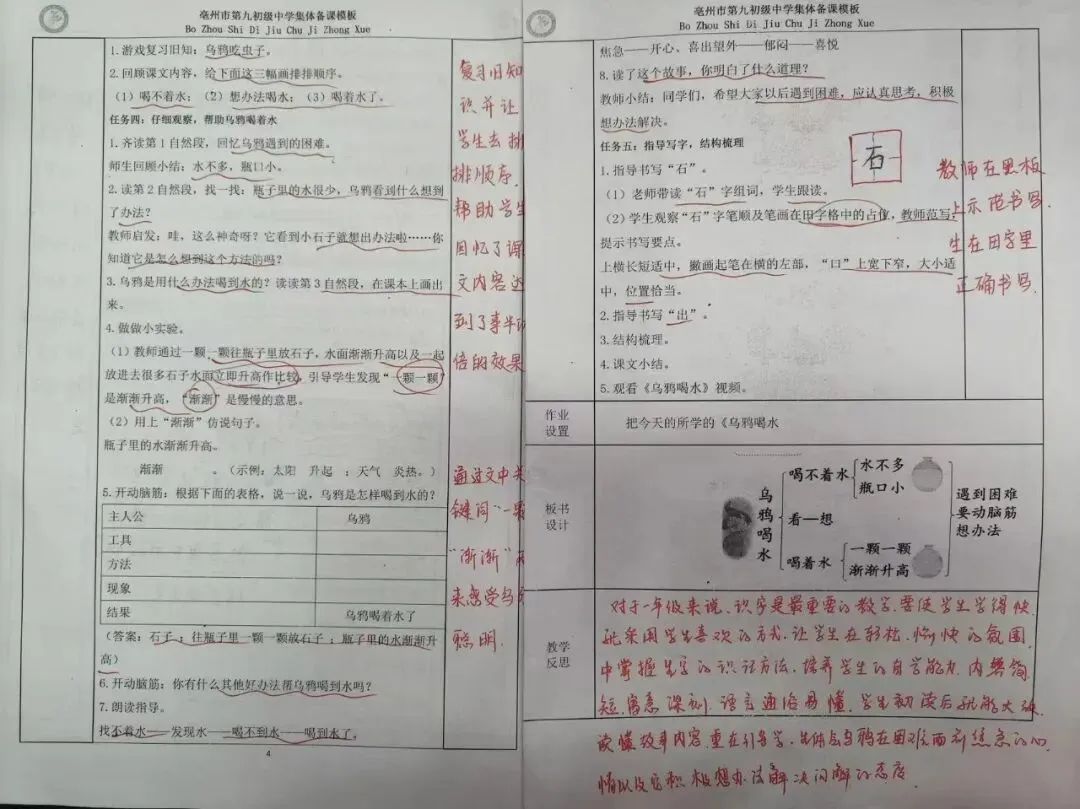 亳州市第九初级中学集体备课模板
Bo Zhou Shi Di Jiu Chu Ji Zhong Xue
1.游戏复习旧知：乌鸦吃虫子。
2.回顾课文内容，给下面这三幅画排排顺序。
（1）喝不着水；（2）想办法喝水；（3）喝着水了。
任务四：仔细观察，帮助乌鸦喝着水
1.齐读第1自然段，回忆乌鸦遇到的困难。
师生回顾小结：水不多，瓶口小。
2.读第2自然段，找一找：瓶子里的水很少，乌鸦看到什么想到
了办法？
教师启发：哇，这么神奇呀？它看到小石子就想出办法啦……你
知道它是怎么想到这个方法的吗？
3.乌鸦是用什么办法喝到水的？读读第3自然段，在课本上画出
来。
4.做做小实验。
（1）教师通过一颗一颗往瓶子里放石子，水面渐渐升高以及一起
放进去很多石子水面立即升高作比较，引导学生发现“一颗一颗”
是渐渐升高，“渐渐”是慢慢的意思。
（2）用上“渐渐”仿说句子。
瓶子里的水渐渐升高。
渐渐 。（示例：太阳 升起 ；天气 炎热。）
5.开动脑筋：根据下面的表格，说一说，乌鸦是怎样喝到水的？
主人公 乌鸦
工具
方法
现象
结果 乌鸦喝着水了
（答案：石子；往瓶子里一颗一颗放石子；瓶子里的水渐渐升
高）
6.开动脑筋：你有什么其他好办法帮乌鸦喝到水吗？
7.朗读指导。
找不着水——发现水——喝不到水——喝到水了。
4
复习旧知
识并让
学生去排
排顺序，
帮助学生
回忆了课
文内容达
到了事半功
倍的效果
通过文中关
键词“一颗
“渐渐”
来感受乌
聪明．
亳州市第九初级中学集体备课模板
Bo Zhou Shi Di Jiu Chu Ji Zhong Xue
焦急——开心、喜出望外——郁闷——喜悦
8.读了这个故事，你明白了什么道理？
教师小结：同学们，希望大家以后遇到困难，应认真思考，积极
想办法解决。
任务五：指导写字，结构梳理
1.指导书写“石”。
（1）老师带读“石”字组词，学生跟读。
（2）学生观察“石”字笔顺及笔画在田字格中的占位，教师范写，
提示书写要点。
上横长短适中，撇画起笔在横的左部，“口”上宽下窄，大小适
中，位置恰当。
2.指导书写“出”。
3.结构梳理。
4.课文小结。
5.观看《乌鸦喝水》视频。
石
教师在黑板
上示范书写．
生在田字里
正确书写．
作业
设置
把今天的所学的《乌鸦喝水
板书
设计
乌鸦喝水
喝不着水
水不多
瓶口小
看—想
喝着水
一颗一颗
渐渐升高
遇到困难
要动脑筋
想办法
教学
反思
对于一年级来说，识字是最重要的教学，要使学生学得快，
就采用学生喜欢的方式，让学生在轻松，愉快的氛围
中掌握生字的识记方法，培养学生的自学能力，内容简
短，寓意深刻，语言通俗易懂，学生初读后就能大
读懂故事内容，重在引导学生体会乌鸦在困难面前焦急的心
情以及它积极想办法解决问题的态度．